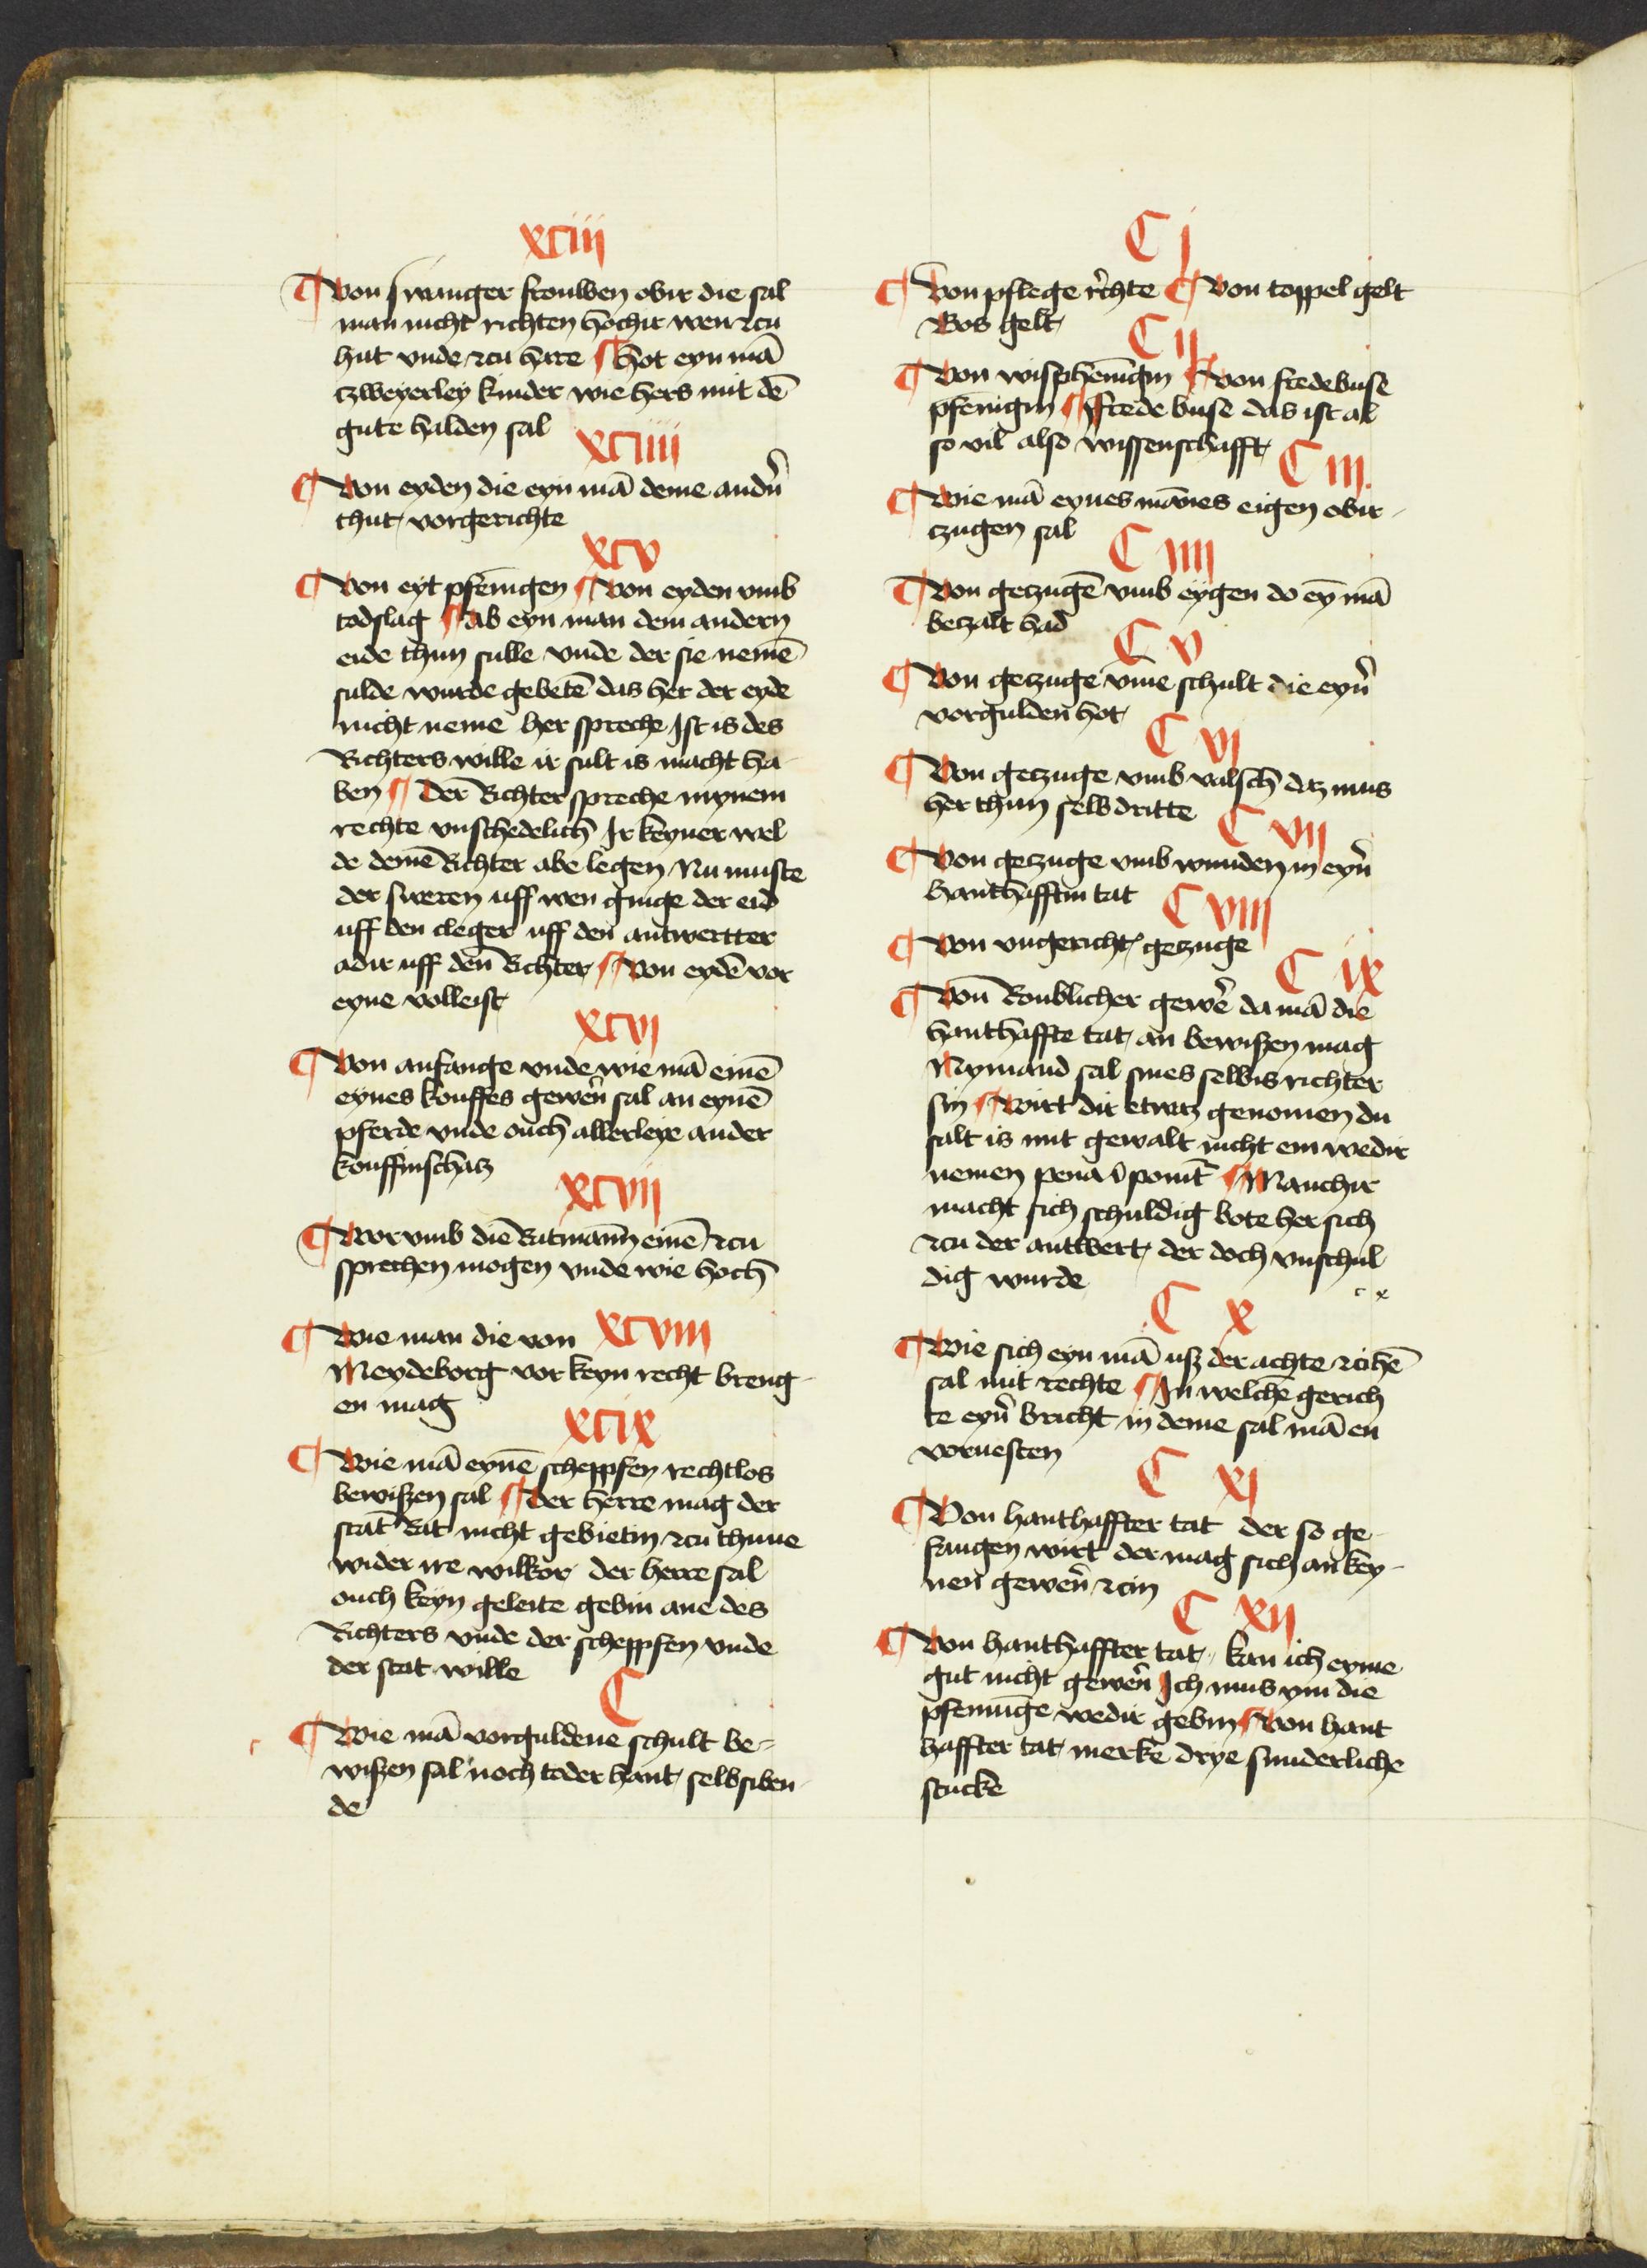 xciij
¶ Von swanger frouwen obir die sal
man nicht richten hochir wen zcu
hut vnde zcu hare ¶ Hot eyn mā
tzweyerley kinder wie hers mit dē
gute halden sal
xciiij
¶ Von eyden die eyn mā deme andn̄
thut vorgerichte
xcv
¶ Von eyt pfenīgen ¶ Von eyden vmb
todslag ¶ Ab eyn man dem andern
eide thun sulle vnde der sie nemē
sulde wurde gebetē das her der eyde
nicht neme her spreche Ist is des
Richters wille ir sult is macht ha
ben ¶ Der Richter spreche mynem
rechte vnschedelich Ir keyner wel
de demē Richter abe legen Nu muste
der sweren uff wen ginge der eid
uff den cleger uff den antwertter
adir uff den Richter ¶ Von eydē vor
eyne volleist
xcvi
¶ Von anfange vnde wie mā einē
eynes kouffes gewern̄ sal an eynē
pferde vnde ouch allerleye ander
kouffmschatz
xcvij
¶ Worvmb die Ratmann̄ einē zcu
sprechen mogen vnde wie hoch
xcviij
¶ Wie man die von
Meydeborg vor keyn recht breng-
en mag
xcix
¶ Wie mā eynē scheppfen rechtlos
bewiszen sal ¶ Der herre mag der
stat Rat nicht gebietin zcu thune
wider ire wilkor der herre sal
ouch keyn geleite gebin ane des
Richters vnde der scheppfen vnde
der stat wille
C
¶ Wie mā vorguldene schult be-
wiszen sal noch toder hant selbsiben
de
C j
¶ Von pflege r̄chte ¶ Von toppel gelt
Bos gelt
C ij
¶ Von wispfenīgin ¶ von fredebuse
pfenigin ¶ Frede buse das ist al
so vil also wissenschafft
C iij
¶ Wie mā eynes mānes eigen obir-
tzugen sal
C iiij
¶ Von getzugē vmb eygen do ey mā
betzalt had
C v
¶ Von getzuge vmē schult die eyn̄
vorgulden hot
C vj
¶ Von getzuge vmb valsch daz mus
her thun selbdritte
C vij
¶ Von getzuge vmb wunden in eyn̄
hanthafftin tat
C viij
¶ Von vngericht getzuge
C ix
¶ Von Roublicher gewē da mā die
hanthaffte tat an bewiszen mag
Nymand sal sines selbis richter
sin ¶ Wirt dir etwaz genomen du
salt is mit gewalt nicht em wedir
nemen pena ponit̄ ¶ Manchir
macht sich schuldig bote her sich
zcu der antwert der doch vnschul
dig wurde
c x
C x
¶ Wie sich eyn mā usz der achte zcihē
sal mit rechte ¶ In welchē gerich
te eyn̄ bricht in deme sal mā en
voruesten
C xj
¶ Von hanthaffter tat der so ge-
fangen wirt der mag sich an key-
nen gewern̄ zcin
C xij
¶ Von hanthaffter tat kan ich eyme
gut nicht gewern̄ Ich mus ym die
pfennige wedir gebin ¶ Von hant
haffter tat merke drye sunderliche
stucke